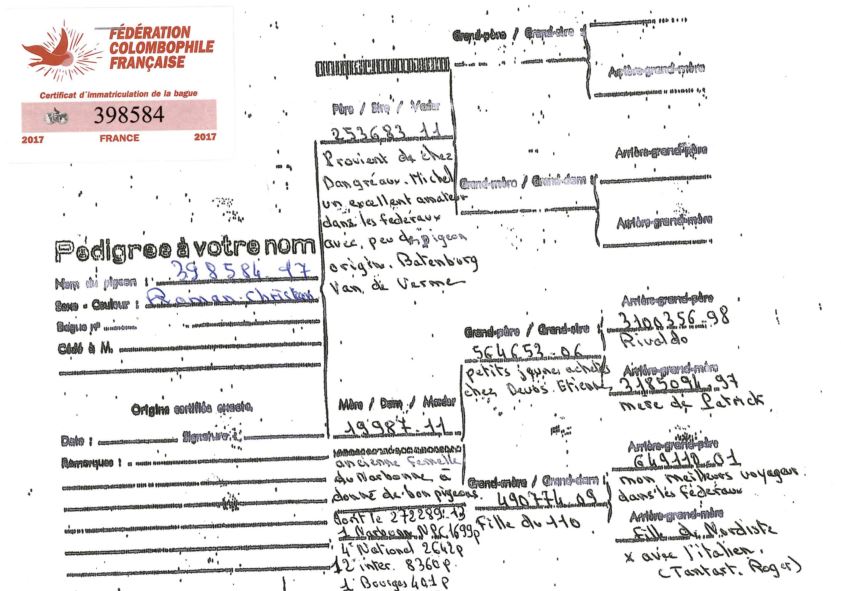 FÉDÉRATION
COLOMBOPHILE
FRANÇAISE
Certificat d'immatriculation de la bague
398584
2017 FRANCE 2017
Pedigree à votre nom
Nom du pigeon : 398584-17
Sexe - Couleur : Roman Christian
Bague n°
Cédé à M.
Origine certifiée exacte,
Date : Signature :
Remarques :
Père / Sire / Vader
253683-11
Provient de chez
Dangréaux. Michel
un excellent amateur
dans les fédéraux
avec, peu de pigeon
origin. Batenburg
Van de Verme
Mère / Dam / Moeder
19987-11
ancienne femelle
du Narbonne, a
donné de bon pigeons
dont le 272289-13
1 Narbonne NRC 1699p
4e National 2642p
12e inter. 8360p
1° Bourges 401p
Grand-père / Grand-sire :
Grand-mère / Grand-dam :
Grand-père / Grand-sire :
564653-06
petits jaune acheté
chez Devos. Etienne
Grand-mère / Grand-dam :
490774.09
Fille du 110
Arrière-grand-mère
Arrière-grand-père
Arrière-grand-mère
Arrière-grand-père
3100356-98
Rivaldo
Arrière-grand-mère
3185094-97
mere de Patrick.
Arrière-grand-père
649110-01
mon meilleurs voyageur
dans les Fédéraux
Arrière-grand-mère
Fille du Nordiste
x avec l'italien.
(Tantart. Roger)